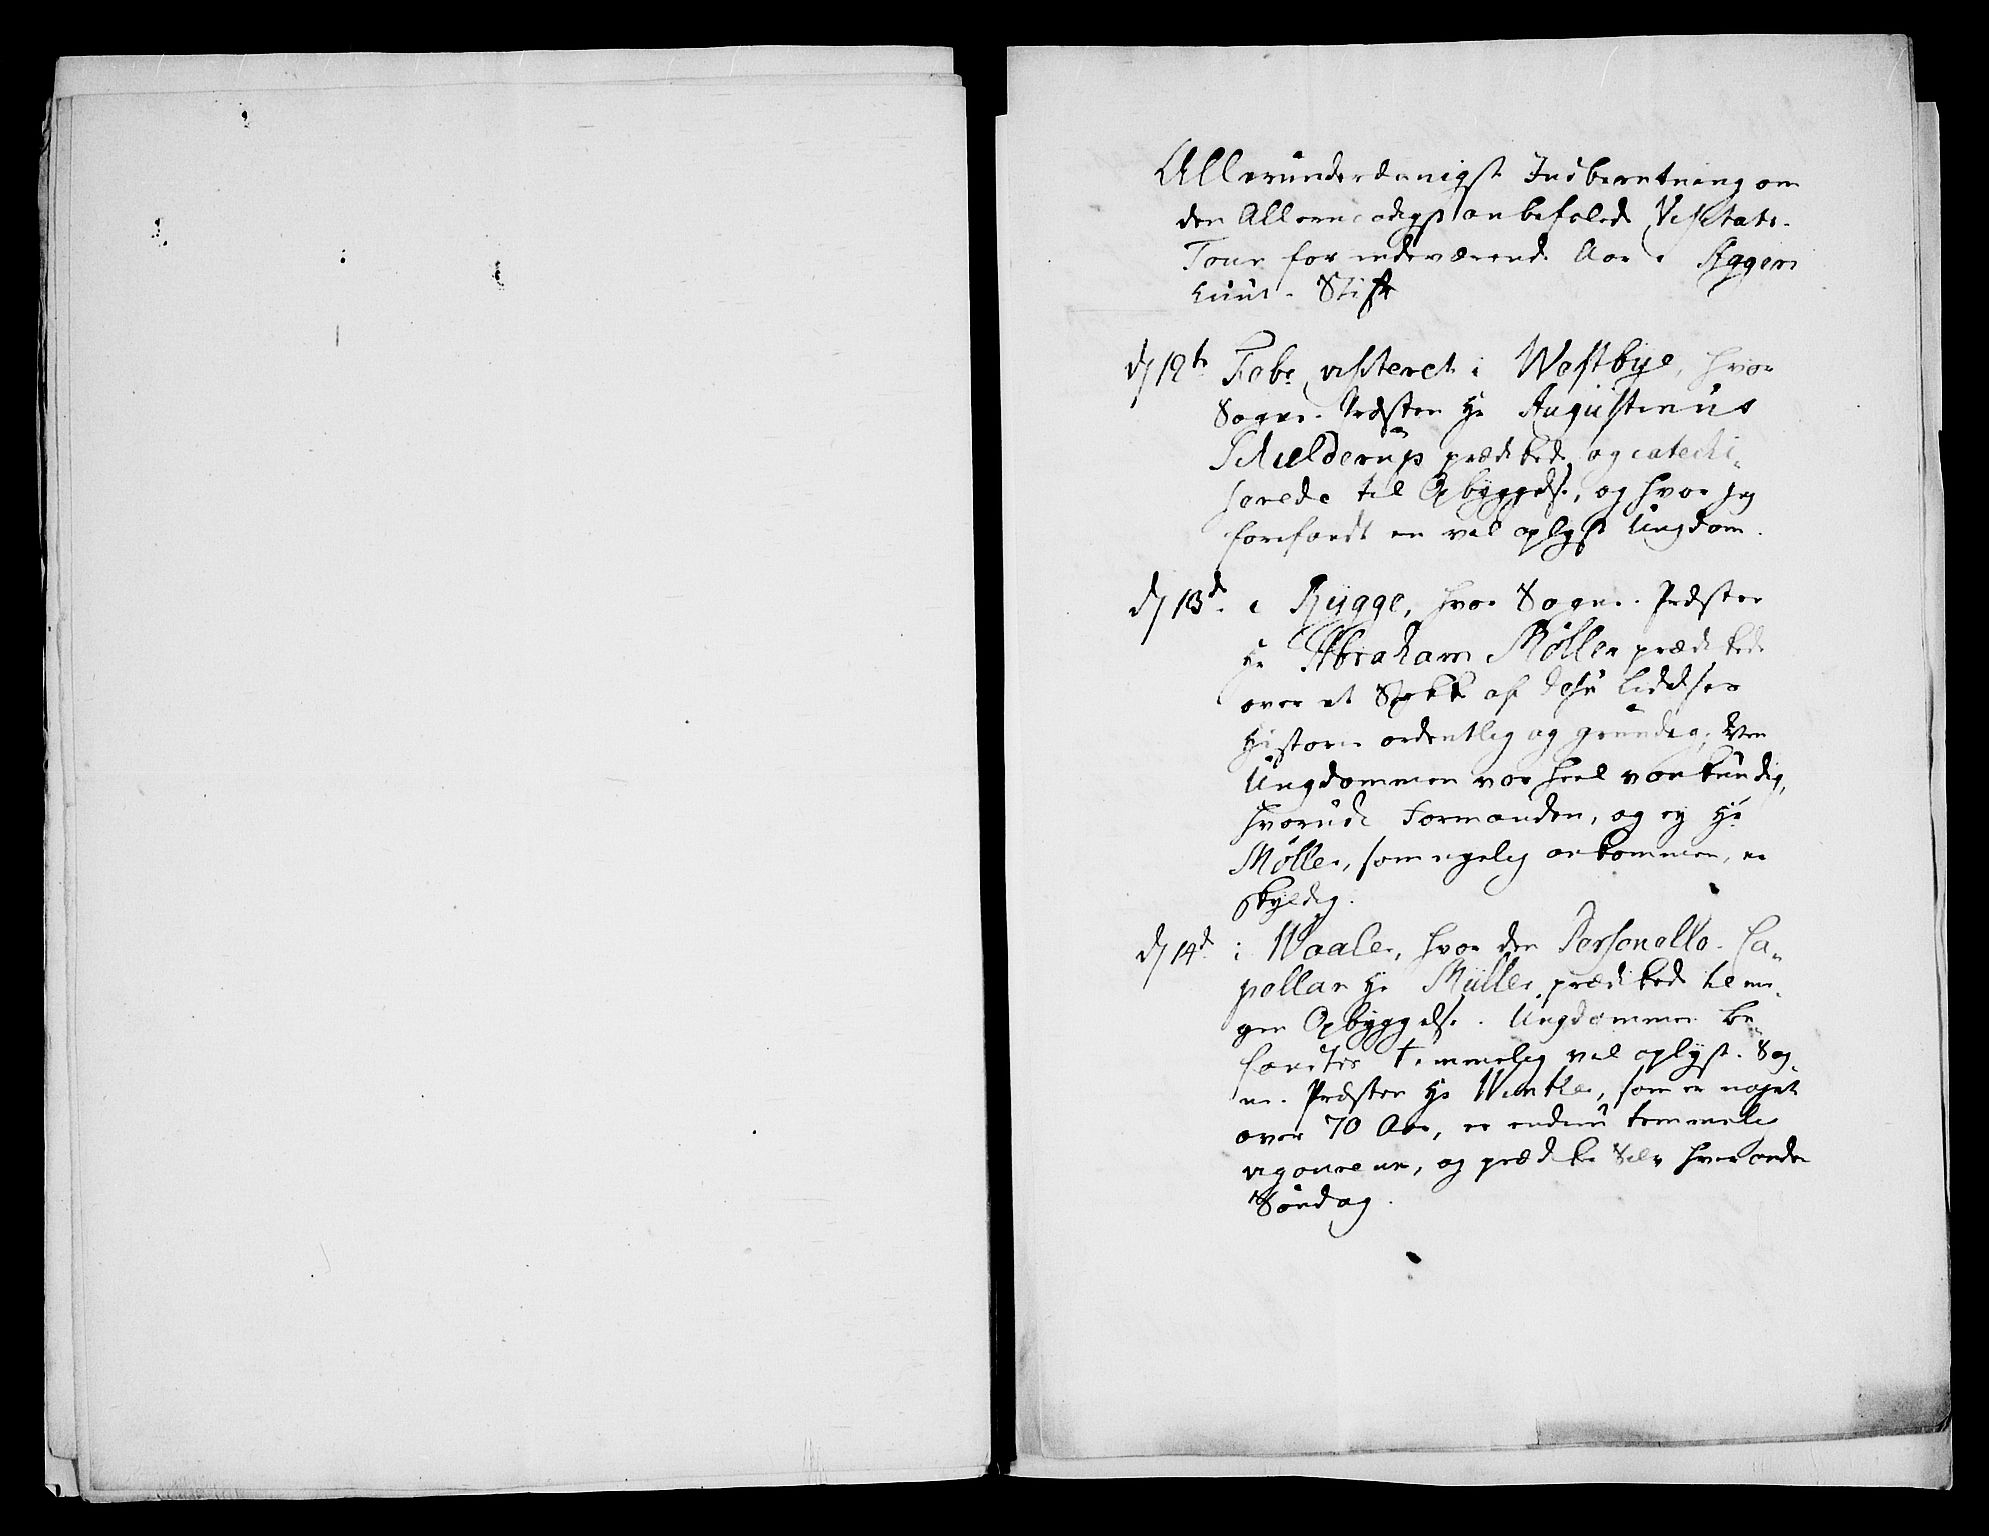 Allerunderdanigst Indberetning om
den Allernaadigst anbefalede Visitats-
Tour for indeværende Aar i Aggers
huus Stift
d 12te Febr visiteret i Westbye, hvor
Sogne-Præsten Hr Augustinus
Schielderup prædikede og catechi-
serede til Opbyggelse, og hvor jeg
forefandt en vel oplyst Ungdom.
d 13de i Rygge, hvor Sogne-Præsten
Hr Abraham Møller prædikede
over et Stykke af Jesu Lidelses
Historie ordentlig og grundig, Men
Ungdommen var heel vankundig,
hvorudi Formanden, og ey Hr
Møller, som nyelig ankommen, er
skyldig.
d 14de i Waaler, hvor den Personelle Ca-
pellan Hr Müller prædikede til en-
gen Opbyggelse. Ungdommen be-
fandtes temmelig vel oplyst. Sog-
ne-Præsten Hr Winther, som er noget
over 70 Aar, er endnu temmelig
vigoureux, og prædiker Selv hver anden
Søndag.